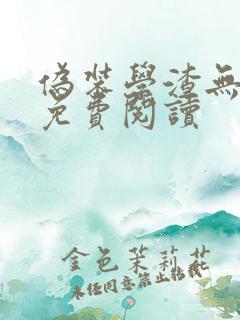 偽裝學渣無
免費閱讀
金色茉莉花
未經同意禁止轉載